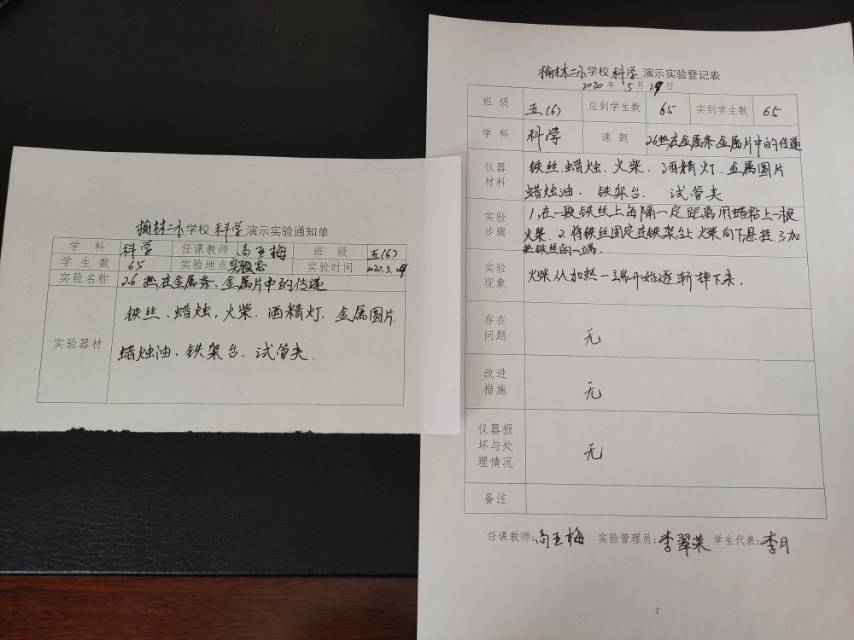 榆林二小学校科学演示实验通知单
学科 科学 任课教师 高玉梅 班级 五(6)
学生数 65 实验地点 实验室 实验时间 2020.5.29
实验名称 26热在金属条、金属片中的传递
实验器材
铁丝、蜡烛、火柴、酒精灯、金属圆片
蜡烛油、铁架台、试管夹.
榆林二小学校科学演示实验登记表
2020年5月29日
班级 五(6) 应到学生数 65 实到学生数 65
学科 科学 课题 26热在金属条、金属片中的传递
仪器材料
铁丝、蜡烛、火柴、酒精灯、金属圆片
蜡烛油、铁架台、试管夹
实验步骤
1.在一段铁丝上每隔一定距离用蜡粘上一根
火柴、2.将铁丝固定在铁架台上火柴向下悬挂 3.加
热铁丝的一端.
实验现象
火柴从加热一端开始逐渐掉下来.
存在问题 无
改进措施 无
仪器损坏与处理情况 无
备注
任课教师:高玉梅 实验管理员:李翠荣 学生代表:李月
2